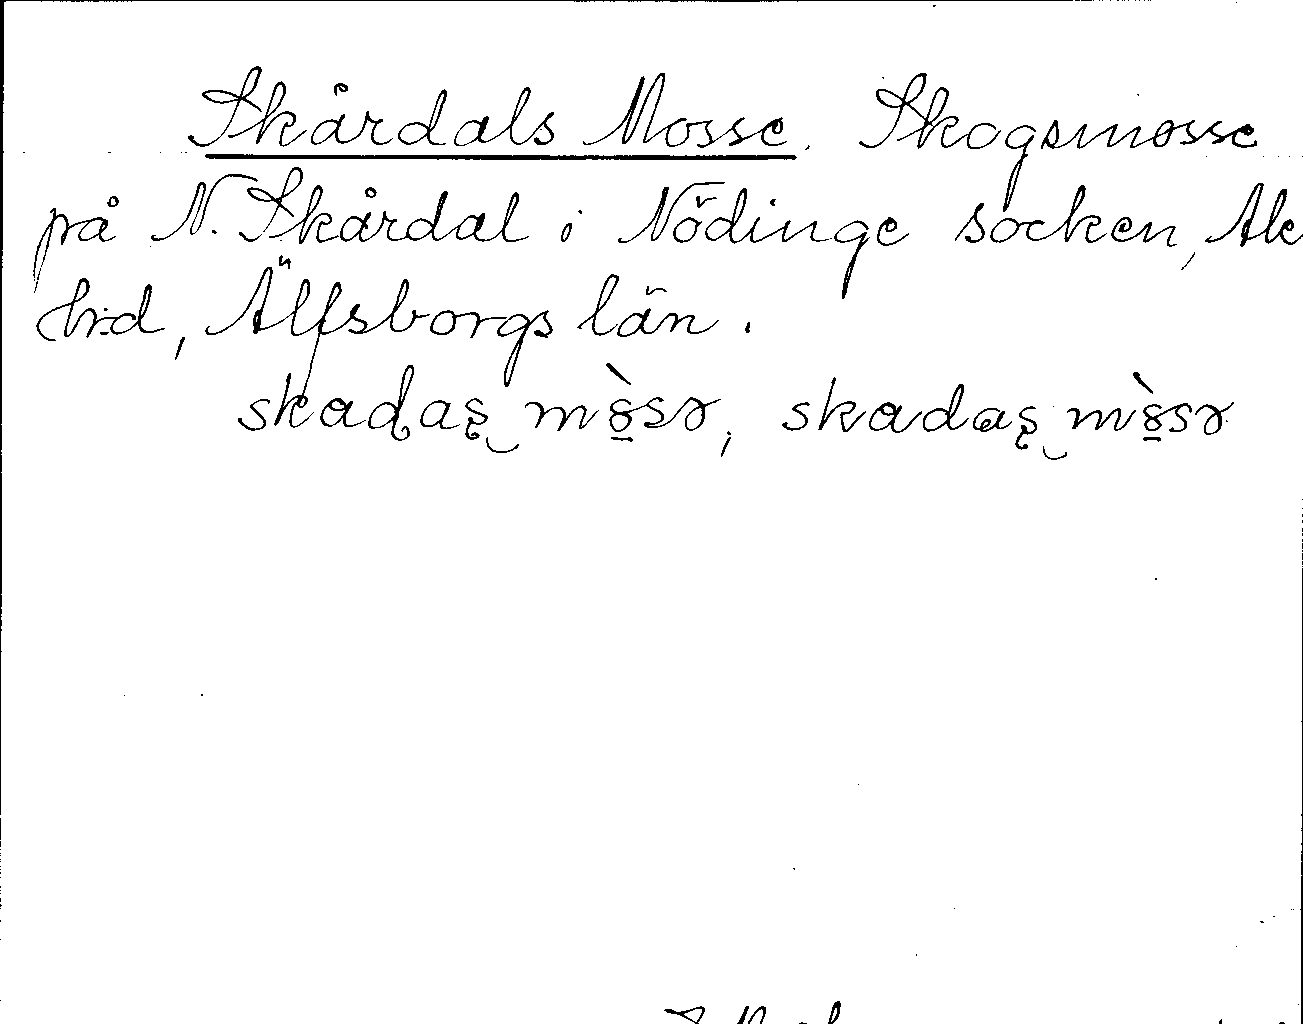 Skårdals Mosse. Skogsmosse
på N. Skårdal i Nödinge socken, Ale
hrd, Älfsborgs län.
skaɖaʂ‿mò̱sə, skadaʂ‿mò̱sə